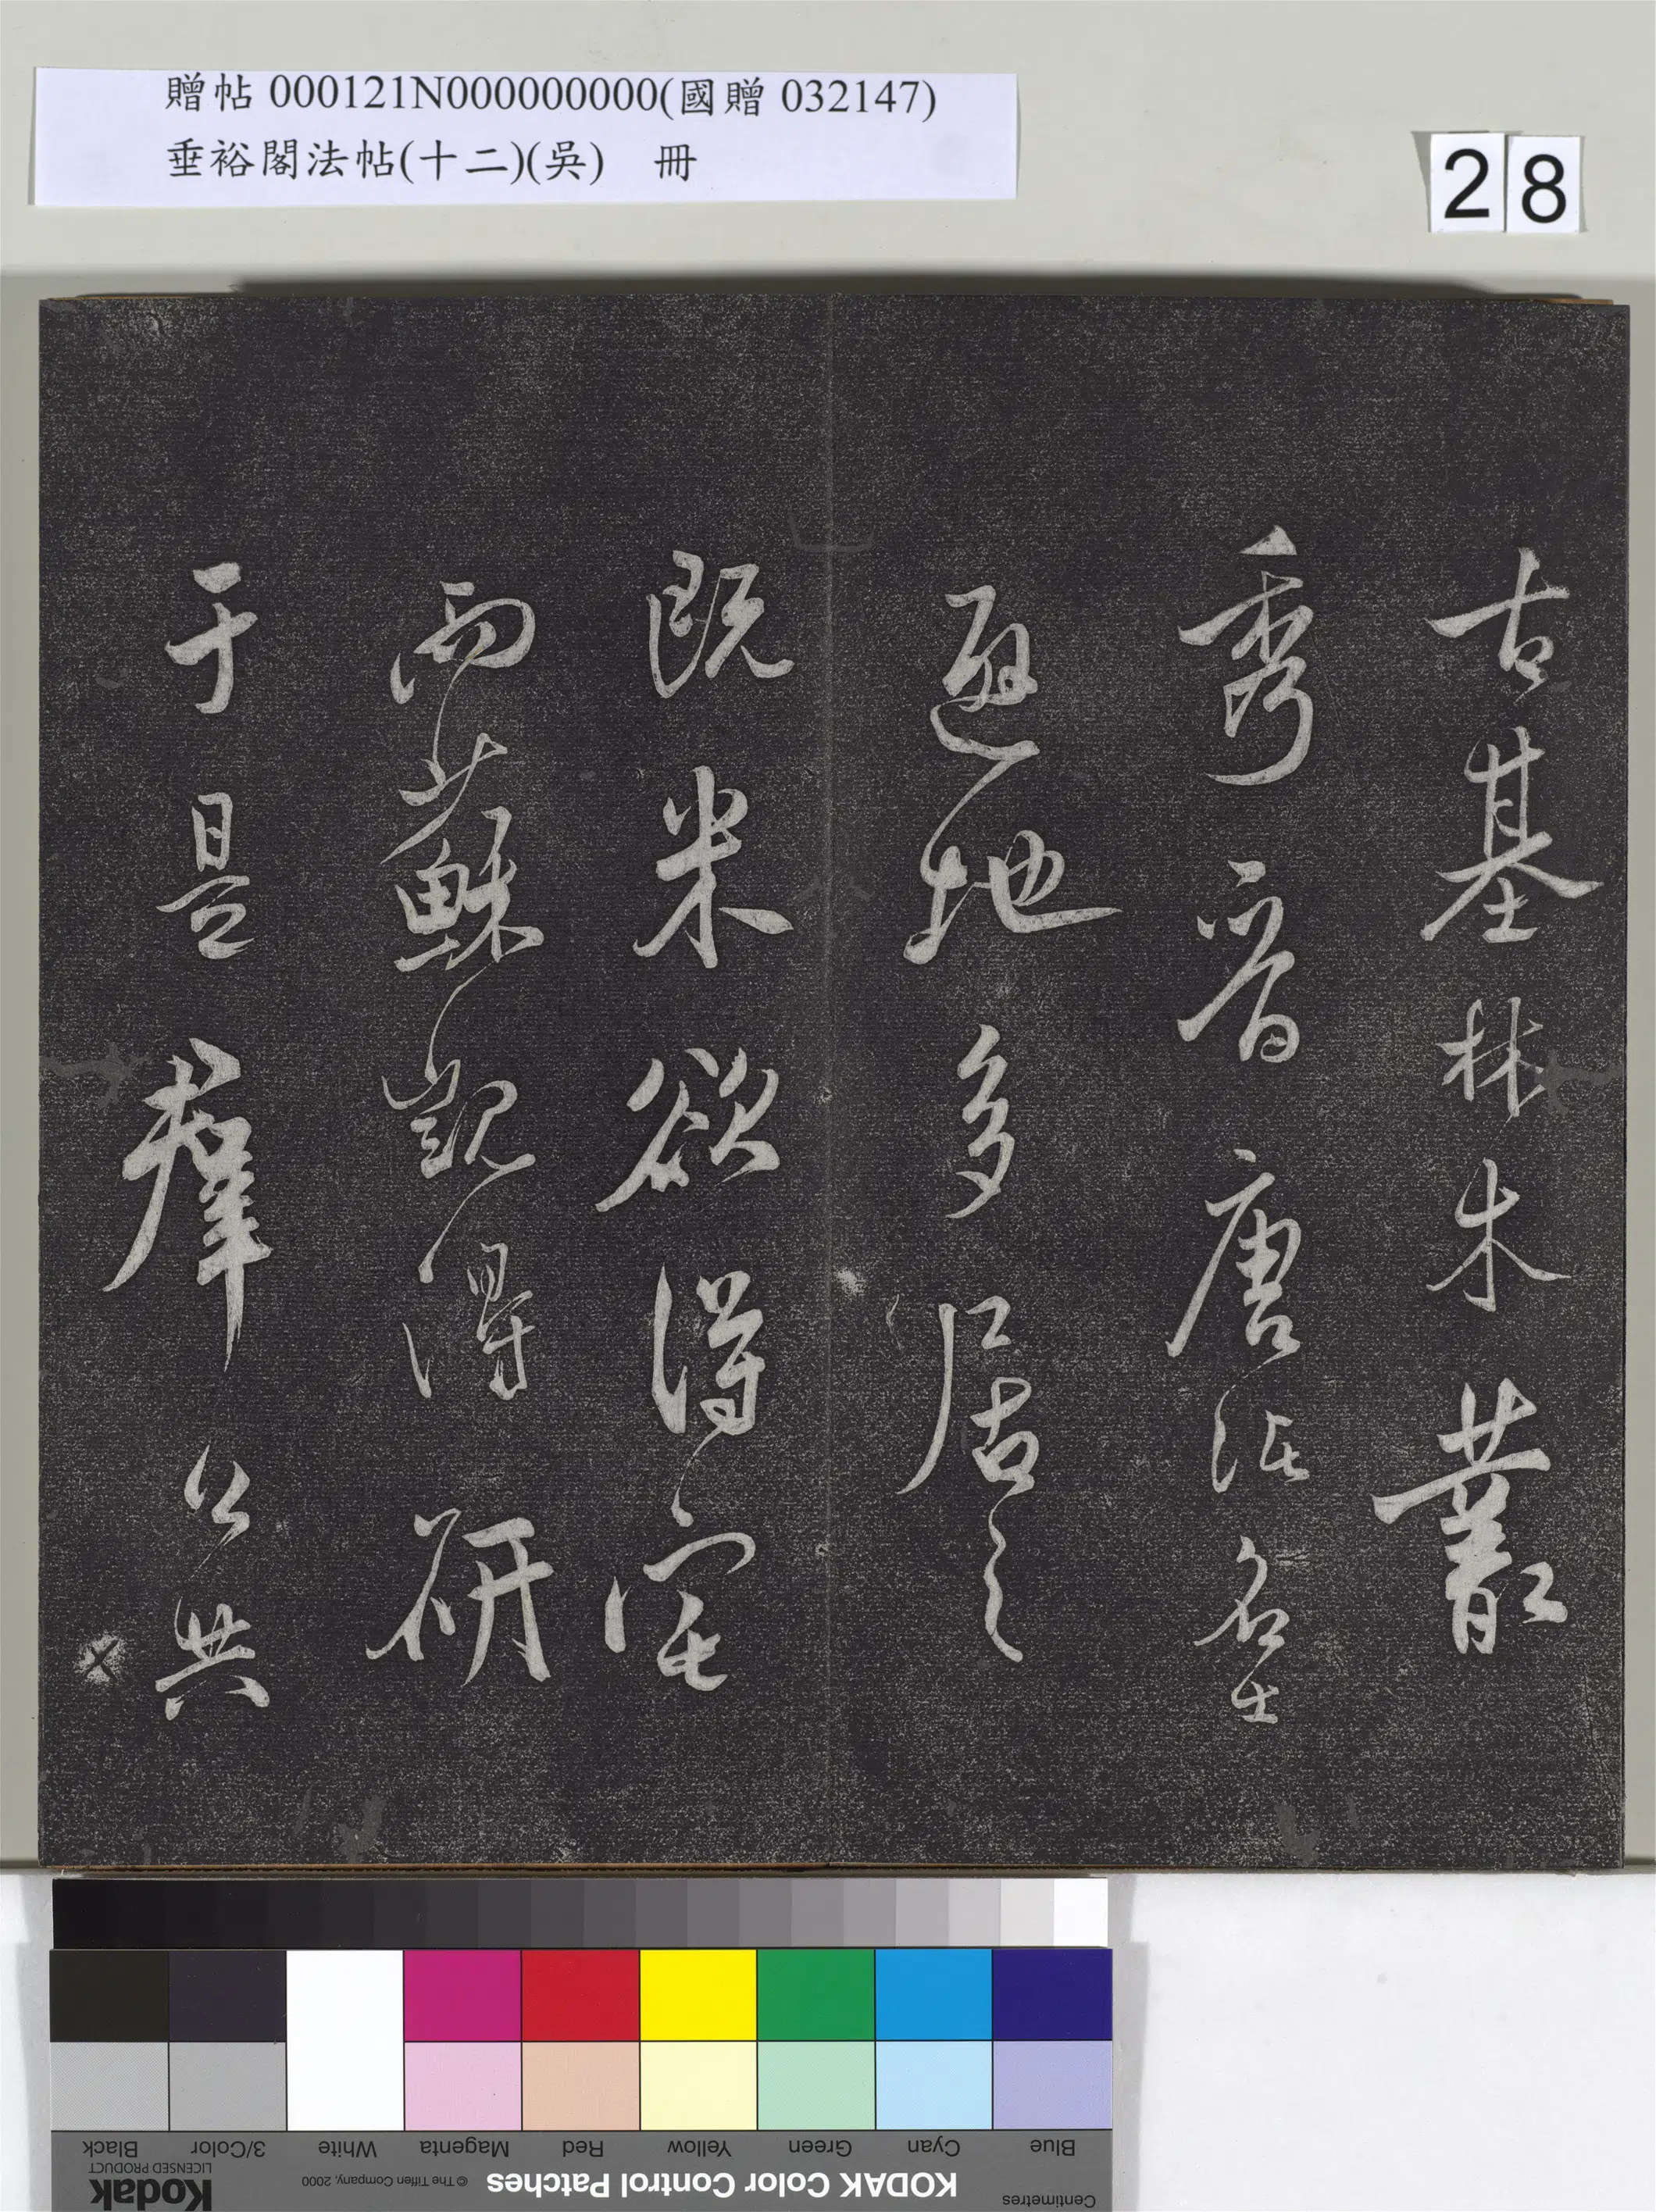 贈帖 000121N000000000(國贈 032147)
垂裕閣法帖(十二)(吳) 冊
28
古基林木叢
秀晉唐以名士
避地多居之
既米欲得宅
而蘇覬得研
于是群公共
Black
3/Color
White
Magenta
Red
Yellow
Green
Cyan
Blue
Kodak
LICENSED PRODUCT
© The Tiffen Company, 2000
KODAK Color Control Patches
Centimetres